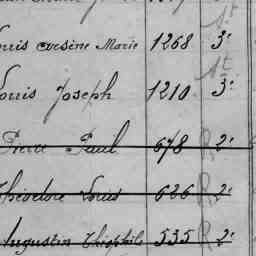 Louis Arsène Marie 1268 3e
Louis Joseph 1210 3e
Pierre Paul 678 R 2e
Théodore Louis 626 R 2e
Augustin Théophile 535 R 2e